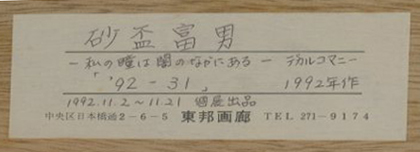 砂盃富男
－私の瞳は闇のなかにある－ デカルコマニー
「'92－31」 1992年作
1992.11.2～11.21 個展出品
中央区日本橋通2－6－5 東邦画廊 TEL 271－9174